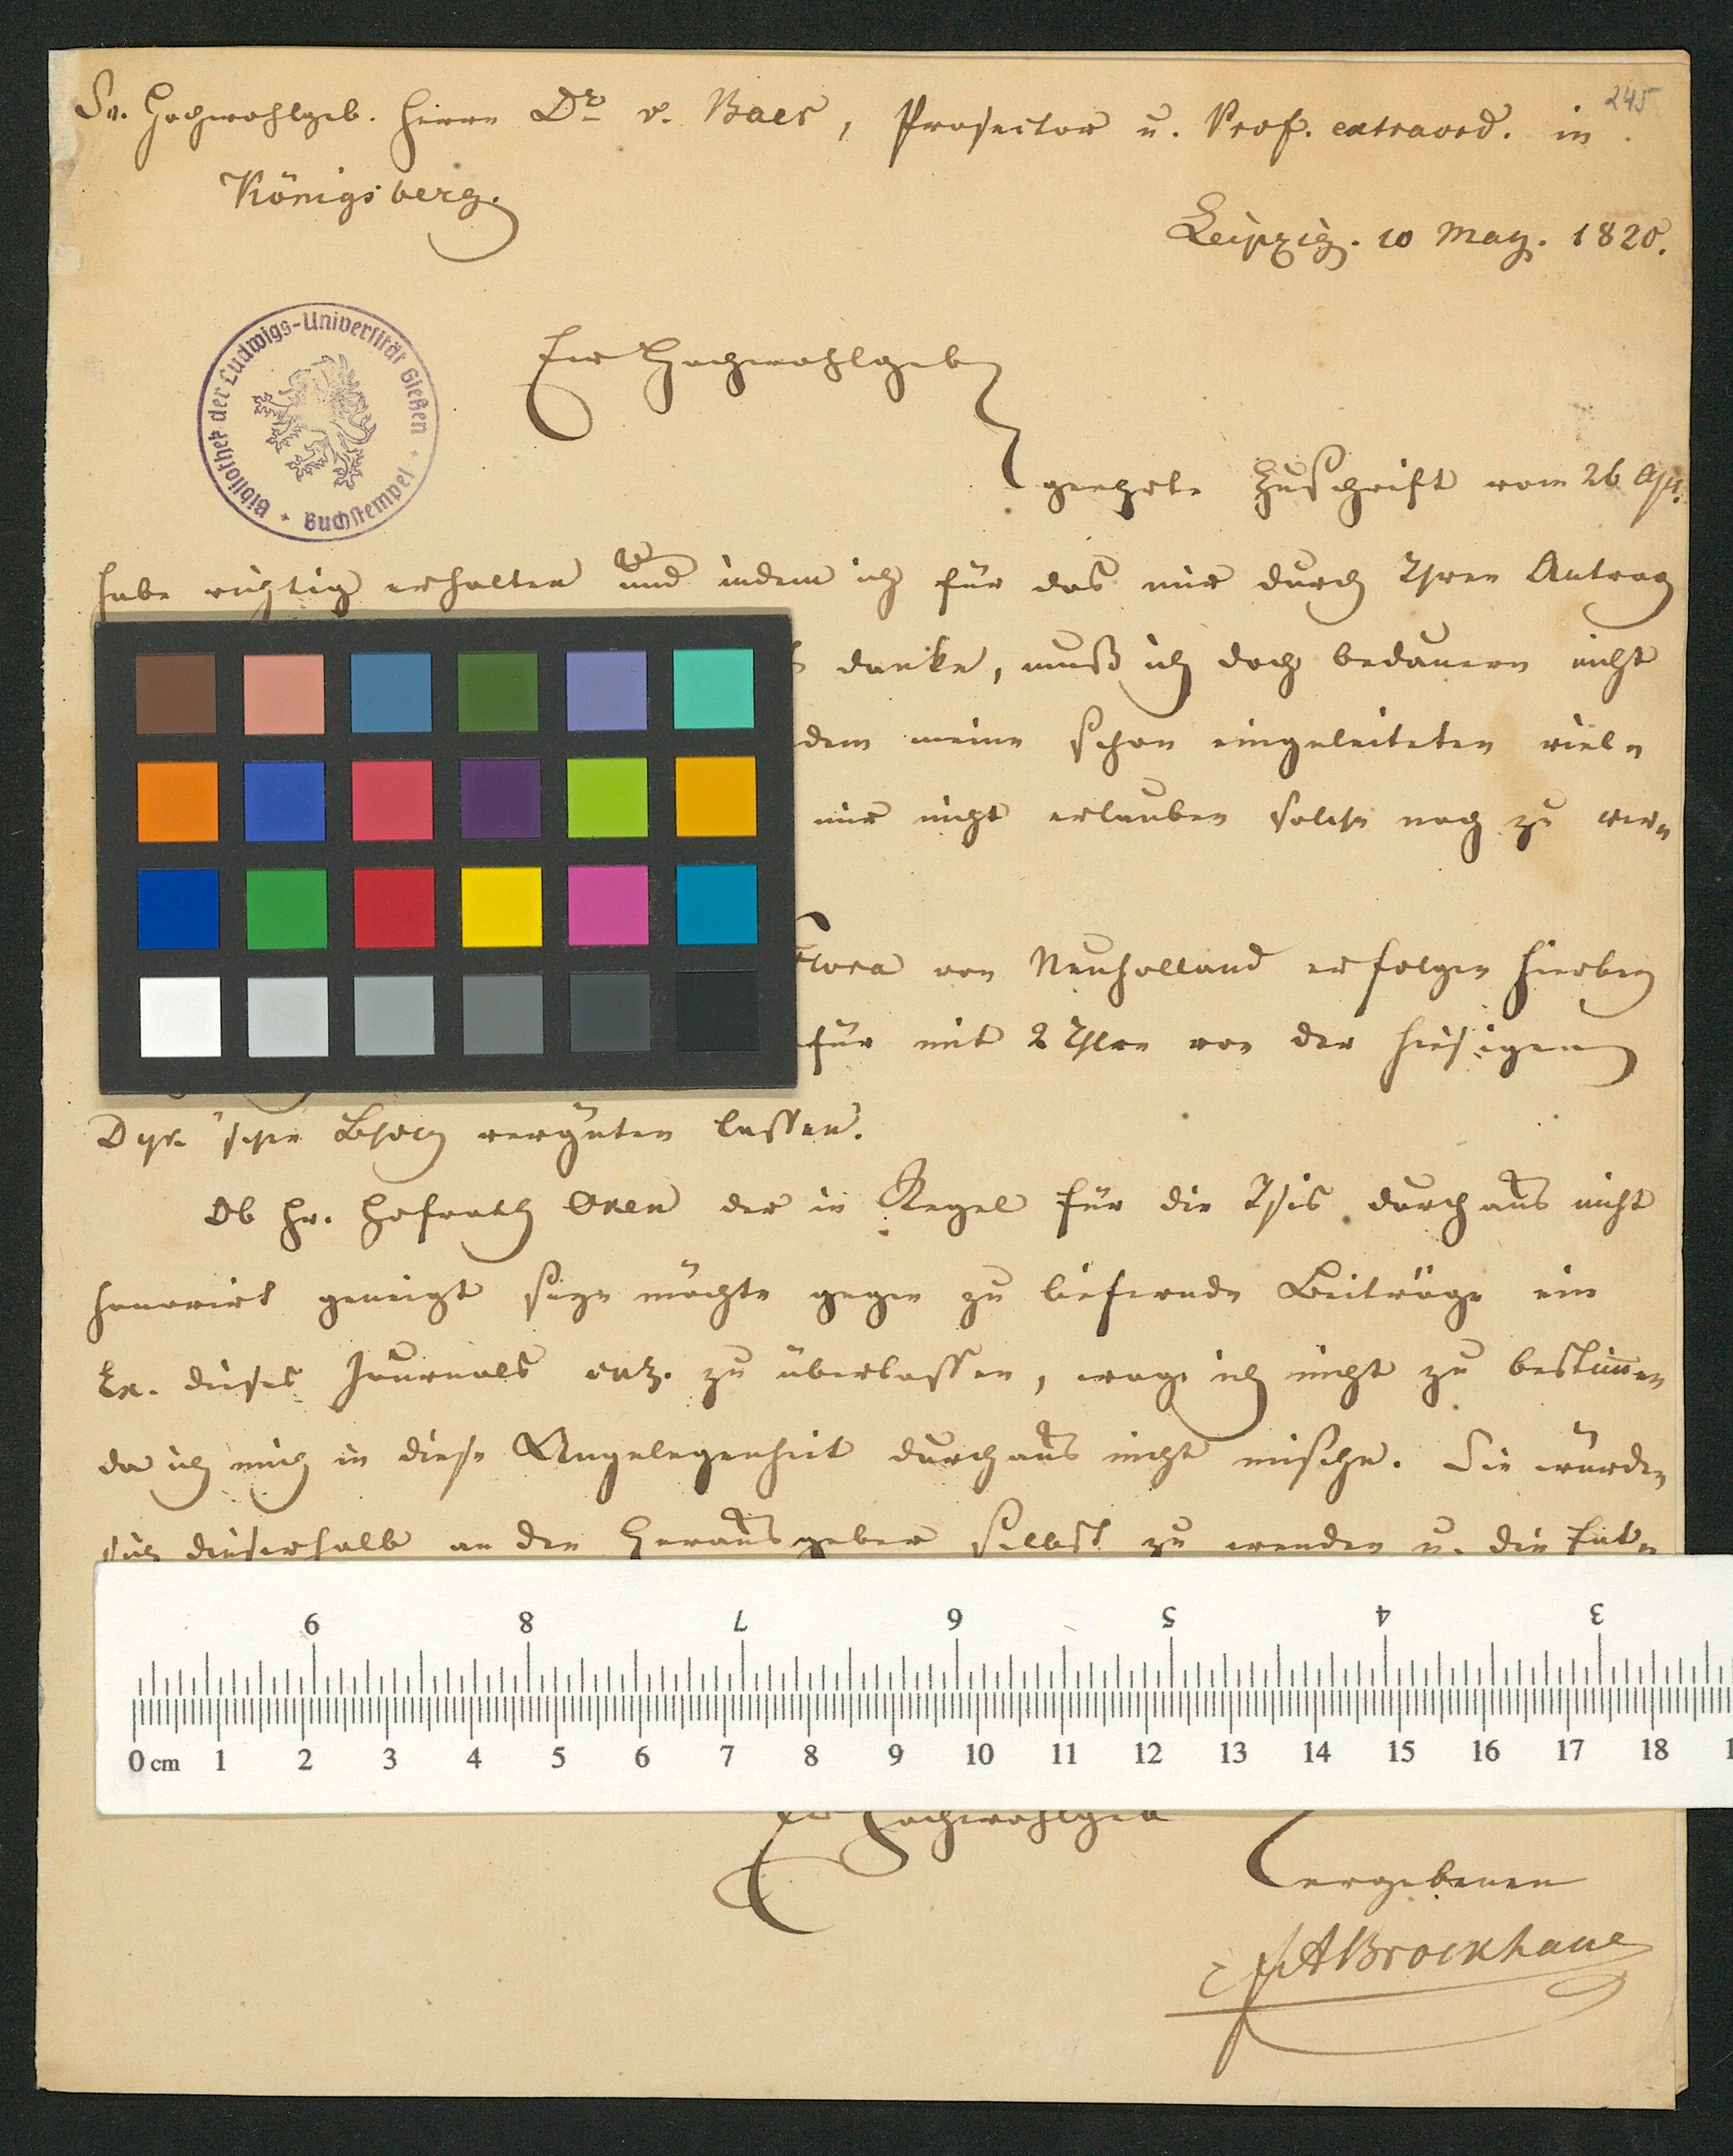 245
Sr. Hochwohlgeb. Herrn Dr v. Baer, Prosector u. Prof. extraord. in
Königsberg.
Leipzig. 10 May. 1820.
Bibliothek der Ludwigs-Universität Gießen
Buchstempel
Ew Hochwohlgeb
geehrte Zuschrift vom 26 Apr.
habe richtig erhalten und indem ich für das mir durch Ihren Antrag
danke, muß ich doch bedauern nicht
dem meine schon eingeleiteten viele
mir nicht erlauben solche noch zu
Flora von Neuholland erfolgen hierbey
für mit 2 von der hiesigen
Dyk'schen vergüten lassen.
Ob Hr. Hofrath Oken der in Regel für die Isis durchaus nicht
honorirt geneigt seyn möchte gegen zu liefernde Beiträge ein
Ex. dieses Journals zu überlassen, wage ich nicht zu bestimen
da ich mich in diese Angelegenheit durchaus nicht mische. Sie würden
sich dieserhalb an den Herausgeber selbst zu wenden u. die
9 8 7 6 5 4 3
0 cm 1 2 3 4 5 6 7 8 9 10 11 12 13 14 15 16 17 18
Ew Hochwohlgeb
ergebenen
FABrockhaus